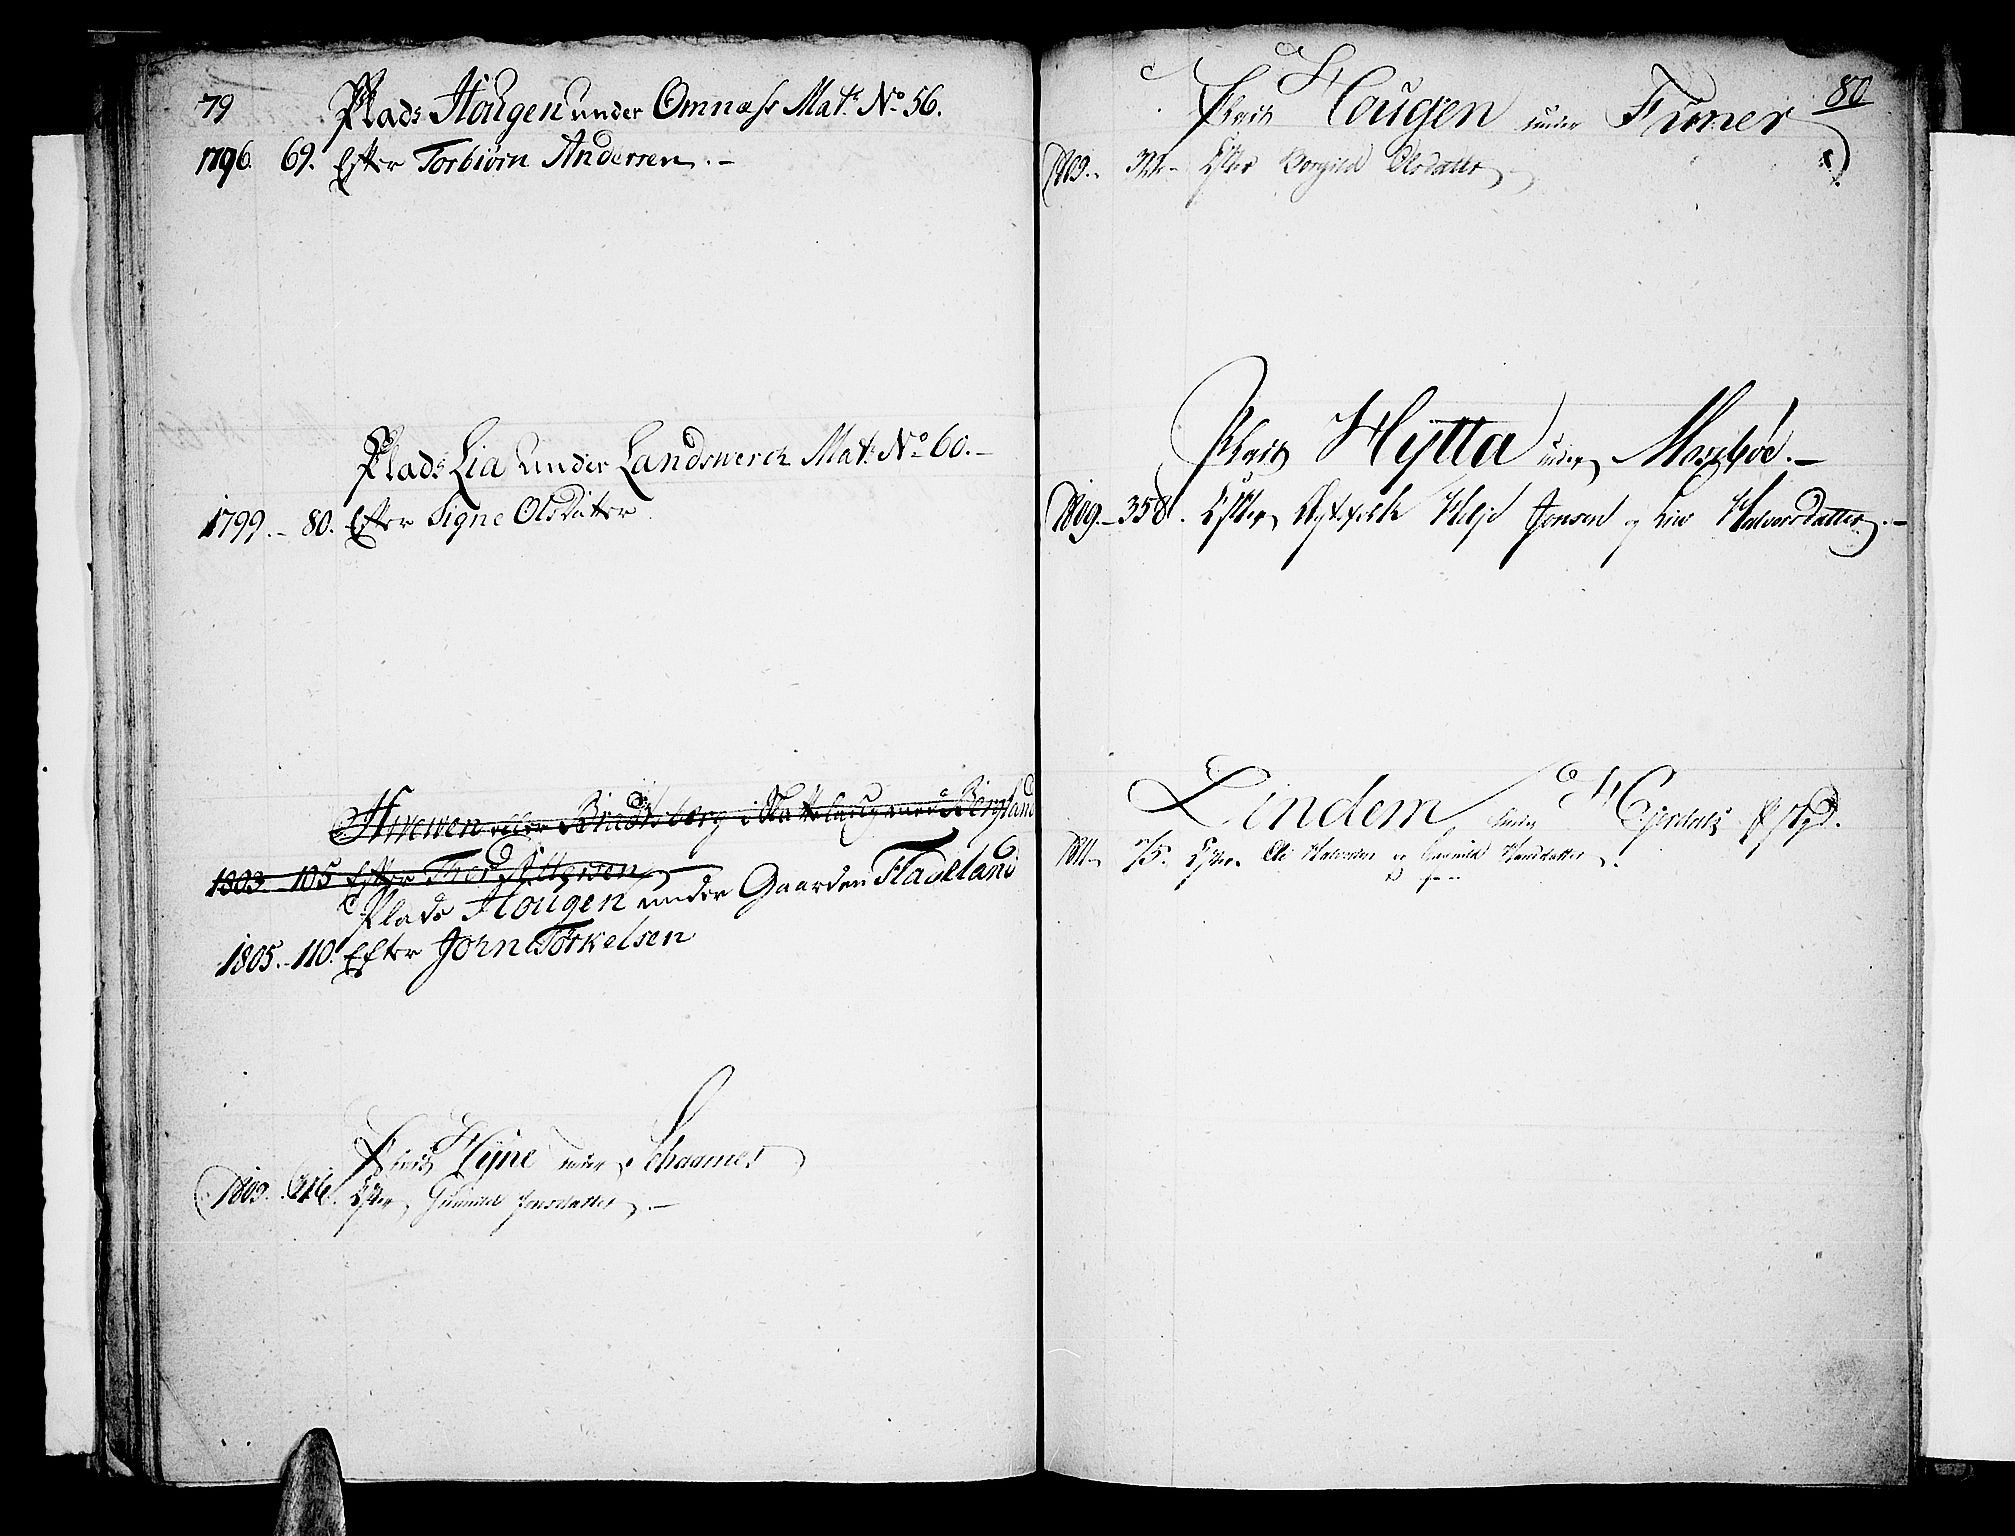 79
Plads Hougen under Omnæss Mat: No 56.
1796. 69. Efter Torbiörn Andersen. -
Plads Lia under Landswerck Mat: No 60. -
1799. - 80. Efter Signe Olsdatter
Hwewen eller Bradsberg i Bergland
1803 105 Efter Thor
Plads Hougen under Gaarden Fladeland
1805. - 110. Efter Jörn Torkelsen
Plads Hyne under Schaarnes
1809. 216. Efter Gunnild Jonsdatter. -
80
Plads Hougen under Frmer
1809. Efter Borgild Olsdatter
Plads Hytta under Marebøe. -
1809 - 358. Efter Helje Jonsen og Liv Halvorsdatter. -
Lindem under Hjerdals
1811 75. Efter Ole Halvorsen og Gunnild Hansdatter